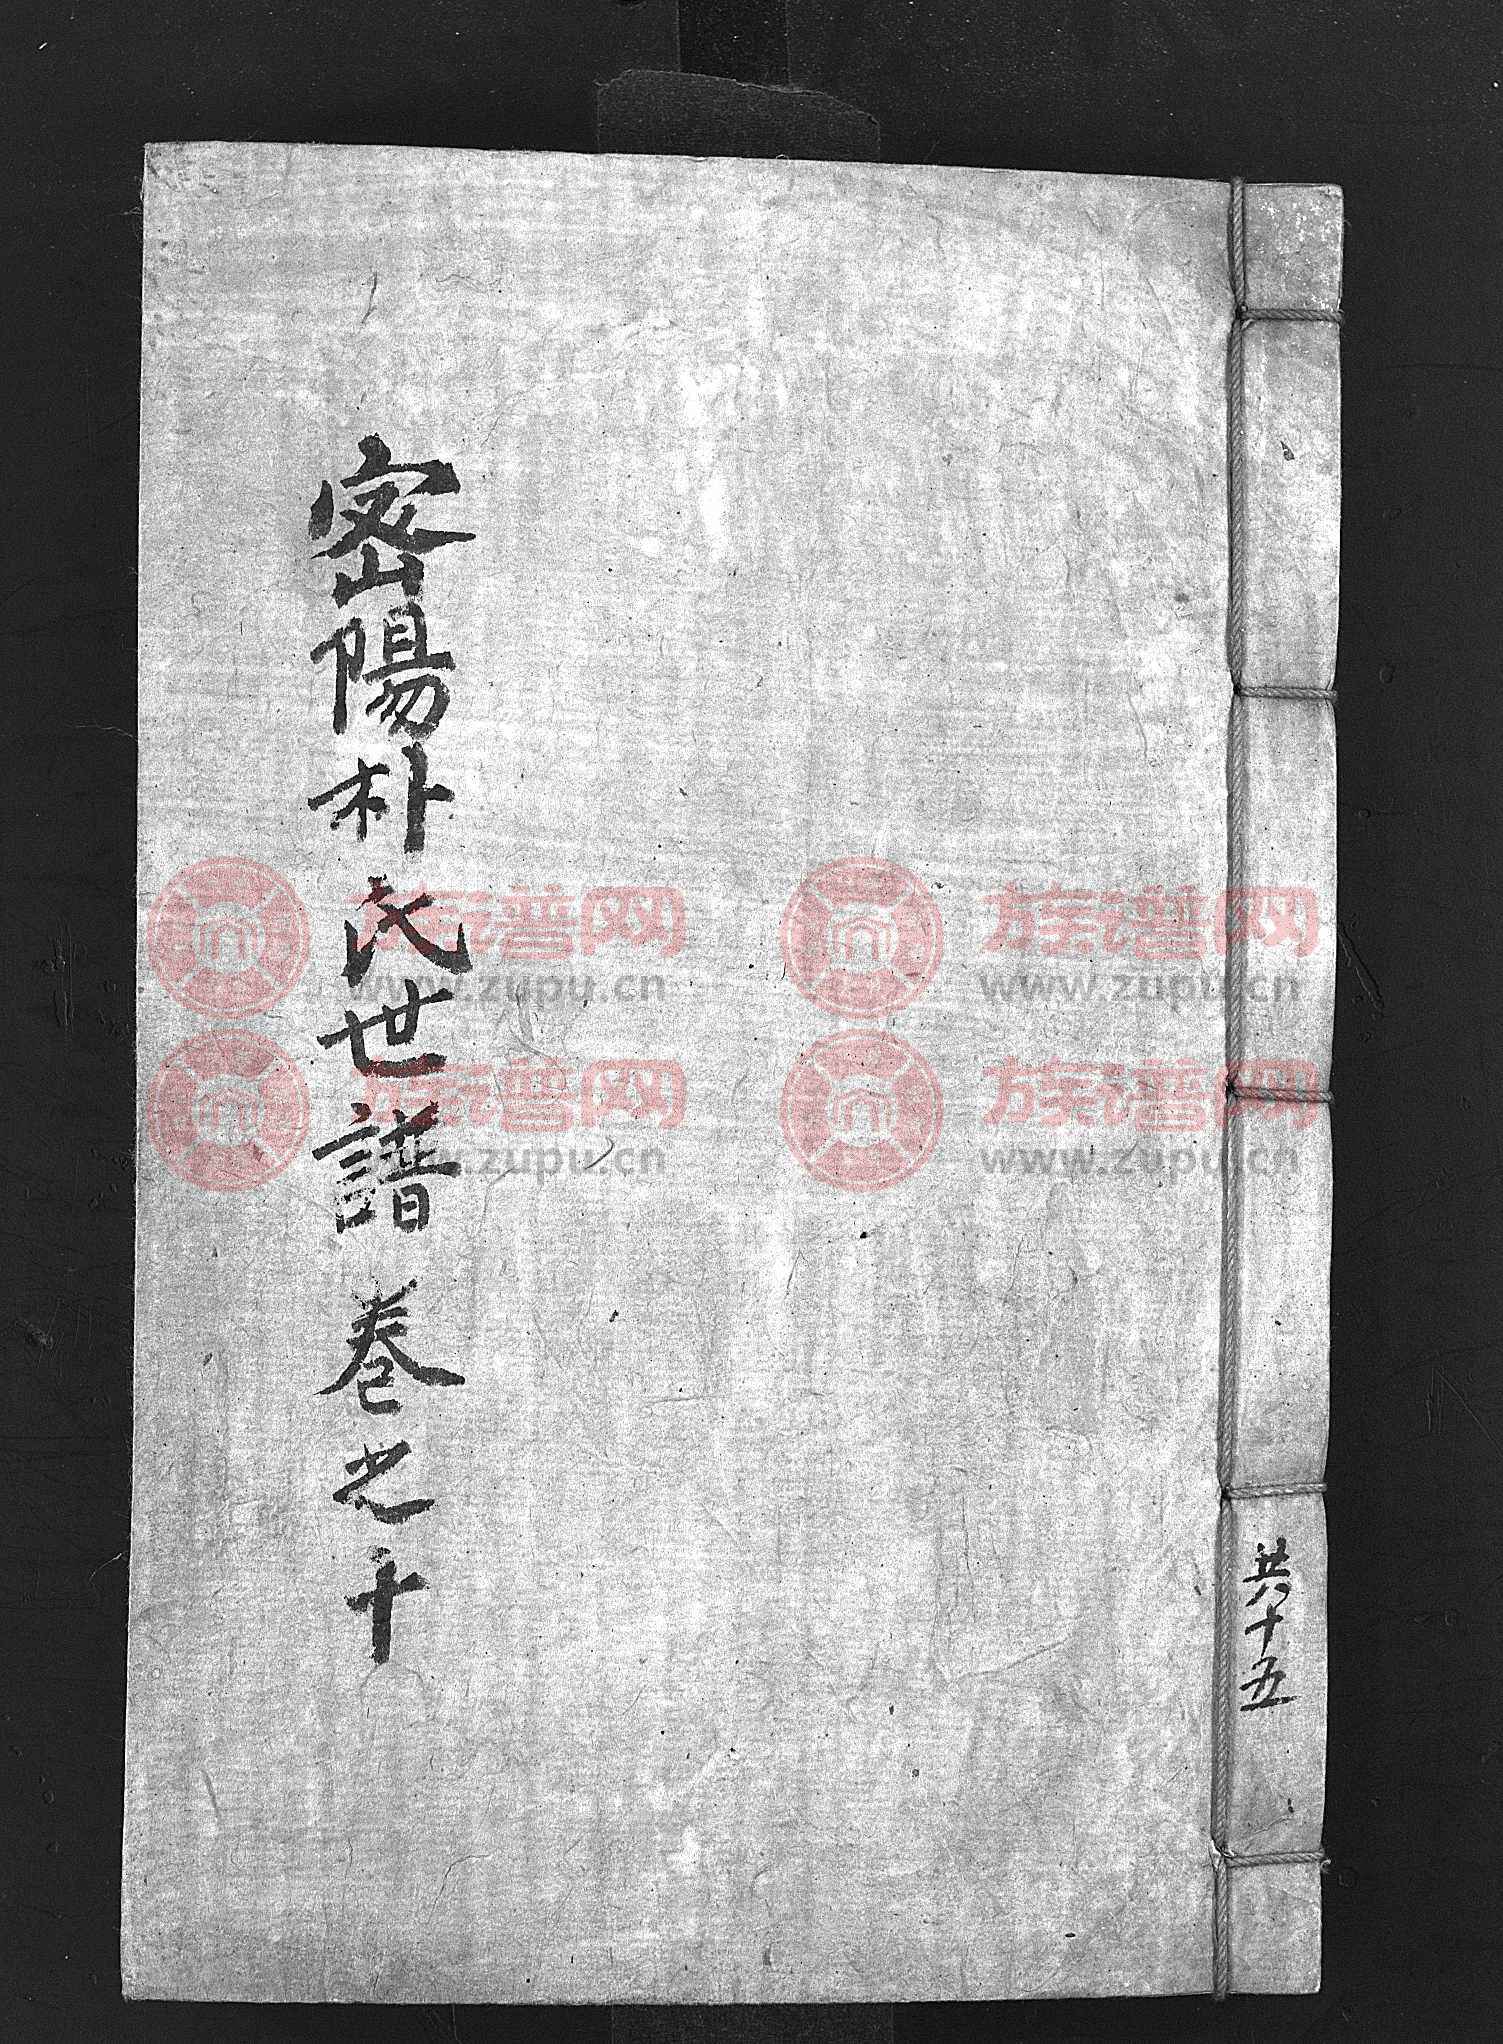 共十五
密陽朴氏世譜 卷之十
族谱网
www.zupu.cn
族谱网
www.zupu.cn
族谱网
www.zupu.cn
族谱网
www.zupu.cn